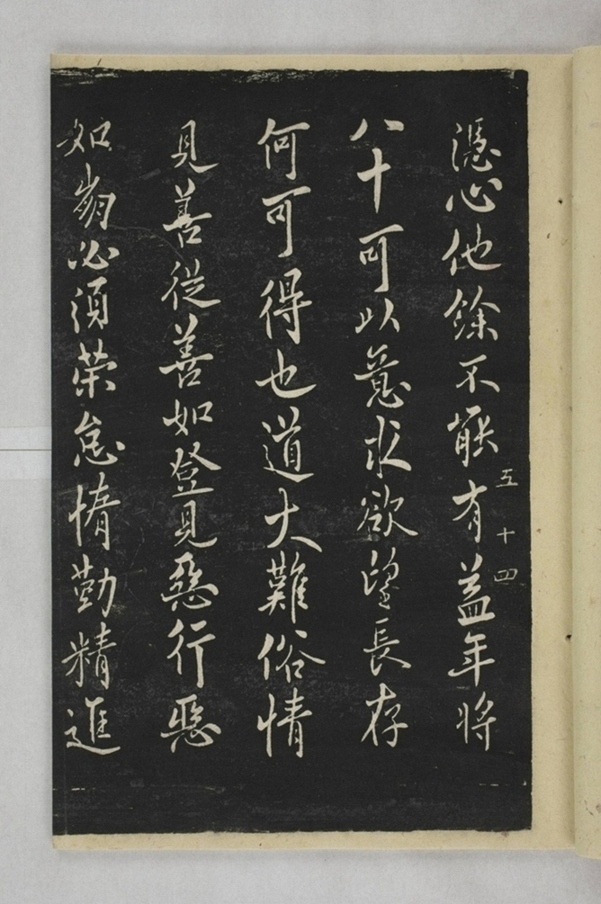 憑心他餘不能有益年將
五十四
八十可以意求欲望長存
何可得也道大難俗情
見善從善如登見惡行惡
必須榮怠惰勤精進